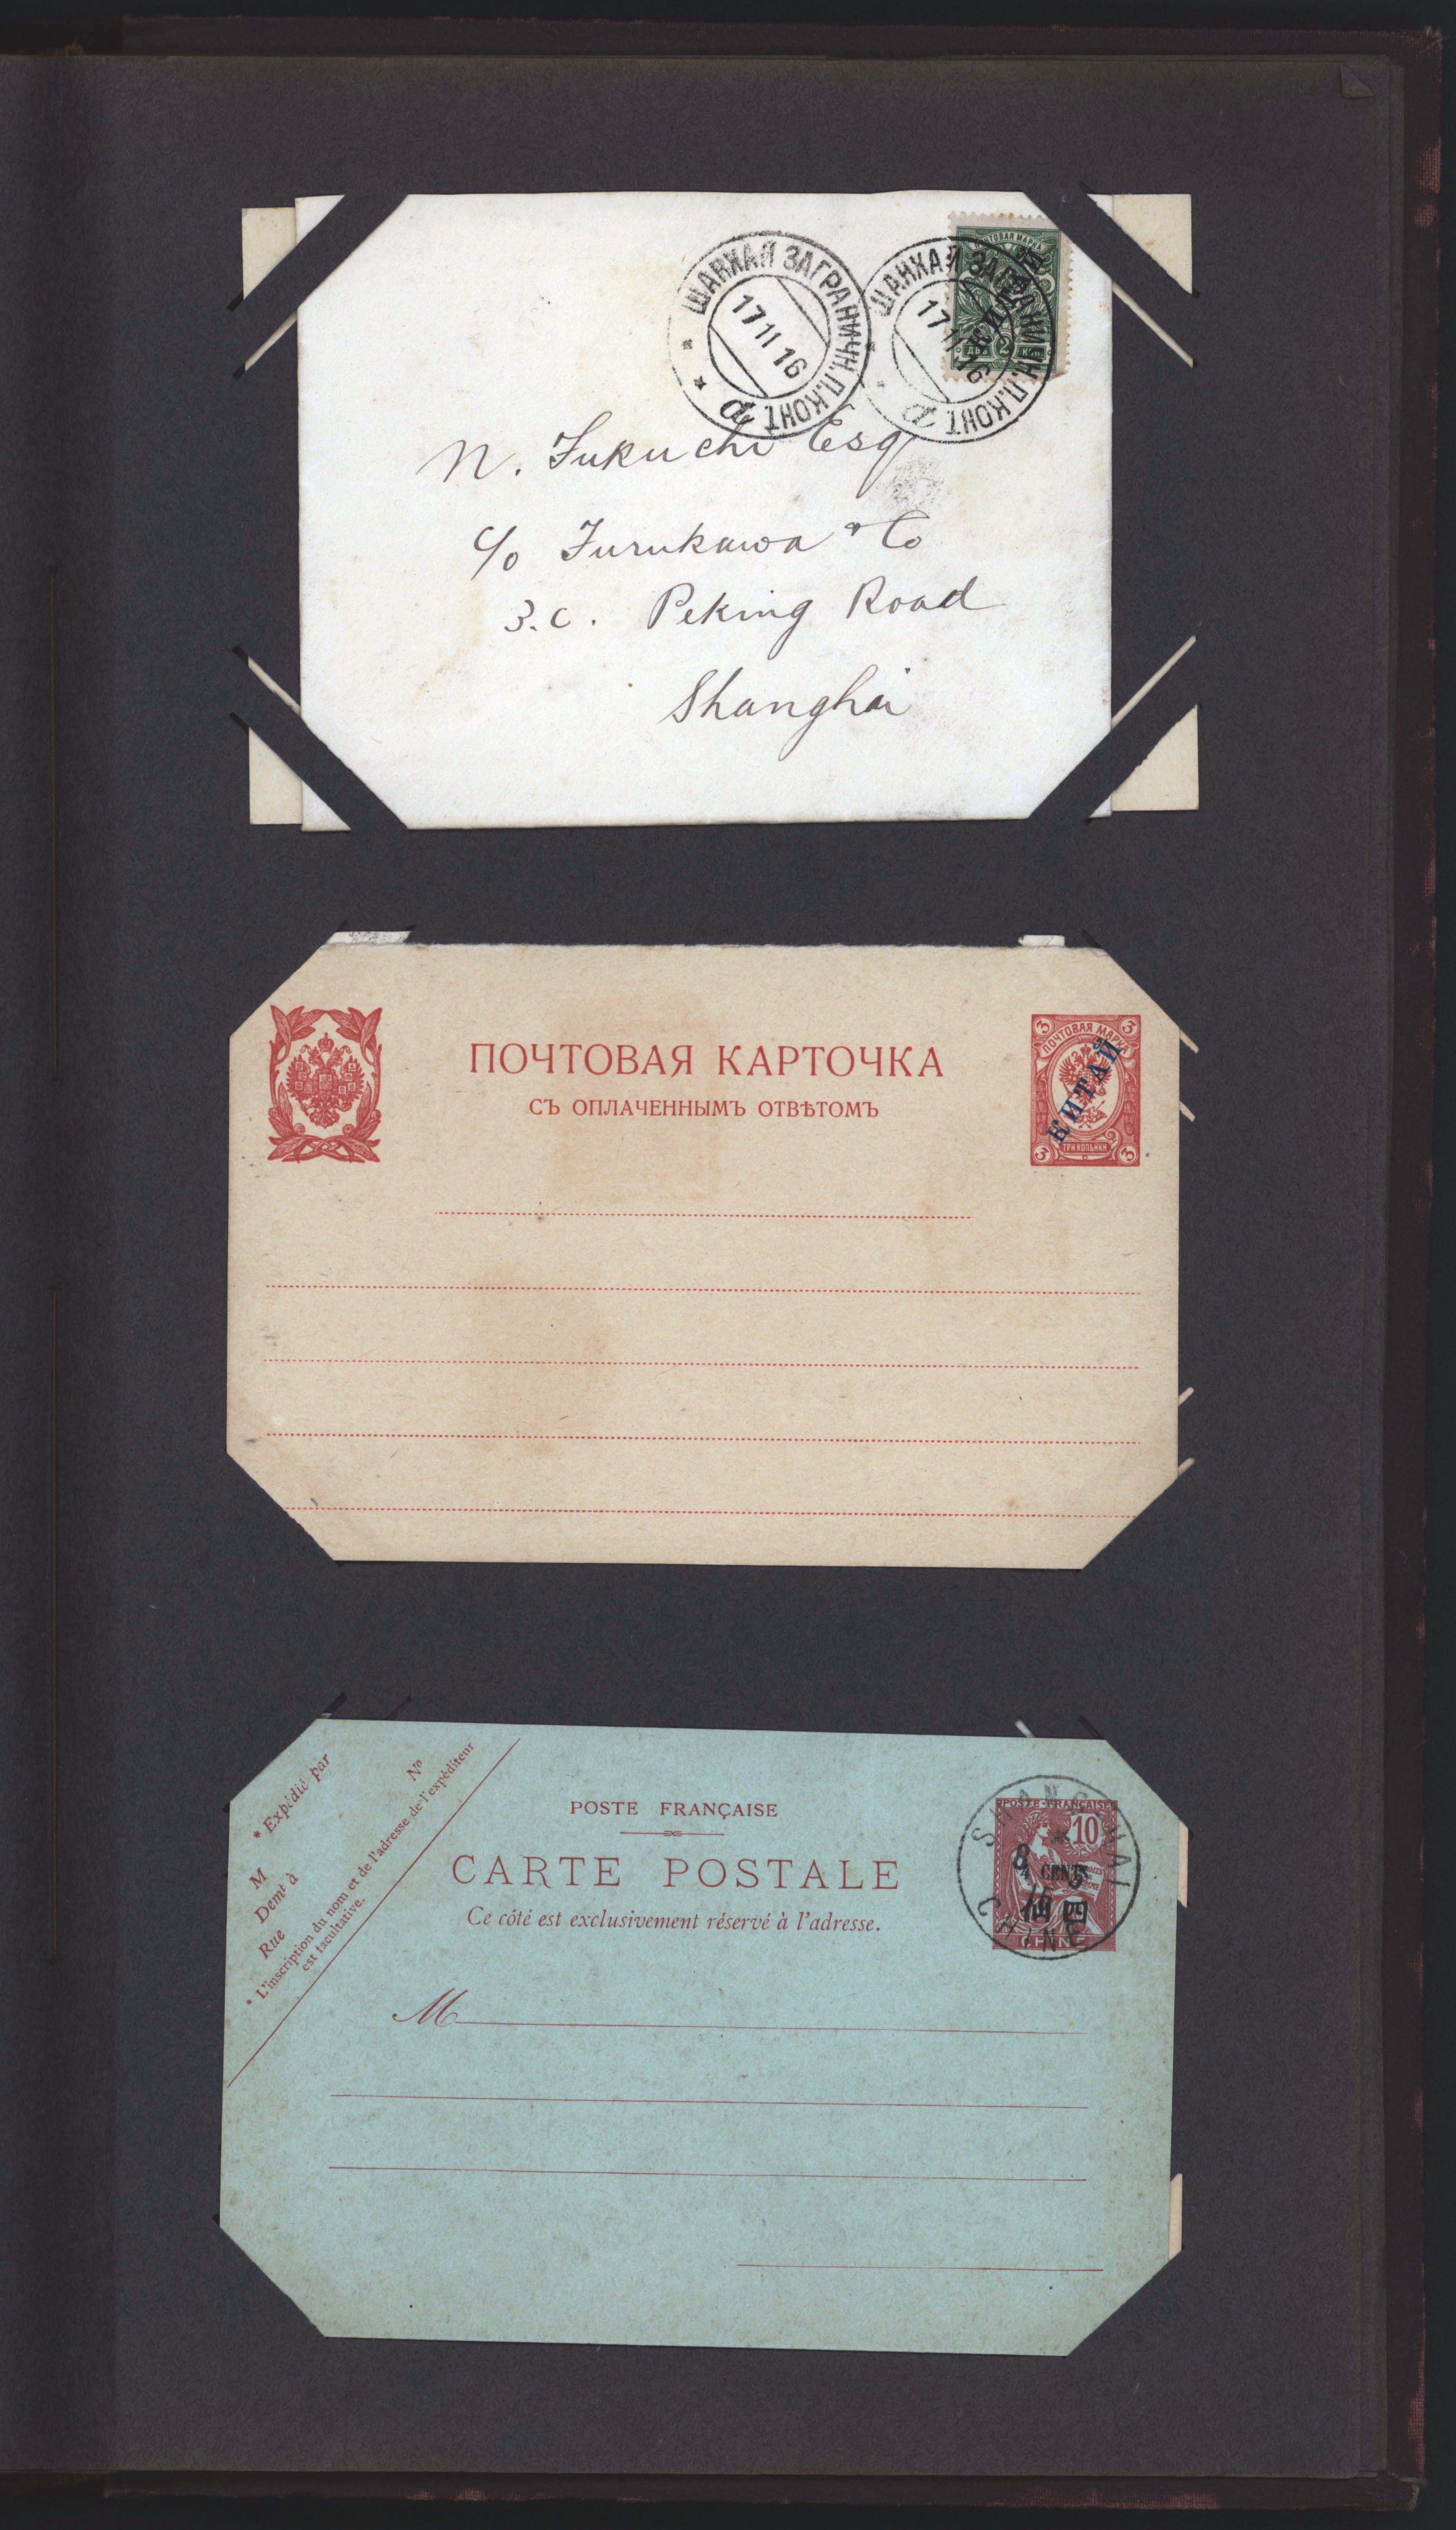 ШАНХАЙ ЗАГРАНИЧН. П. КОНТ.
17 11 16
a
ШАНХАЙ ЗАГРАНИЧН. П. КОНТ.
17 11 16
a
ПОЧТОВАЯ МАРКА
ДВѢ 2 КОП.
N. Fukuchi Esq
c/o Furukawa & Co
3.C. Peking Road
Shanghai
ПОЧТОВАЯ КАРТОЧКА
СЪ ОПЛАЧЕННЫМЪ ОТВѢТОМЪ
3 3
ПОЧТОВАЯ МАРКА
КИТАЙ
ТРИ КОПѢЙКИ
3 3
* Expédié par
M
Demt à
Rue
No
* L'inscription du nom et de l'adresse de l'expéditeur
est facultative.
POSTE FRANÇAISE
CARTE POSTALE
Ce côté est exclusivement réservé à l'adresse.
M
POSTE FRANÇAISE
10
4 CENTS
仙四
CHINE
SHANGHAI
CHINE